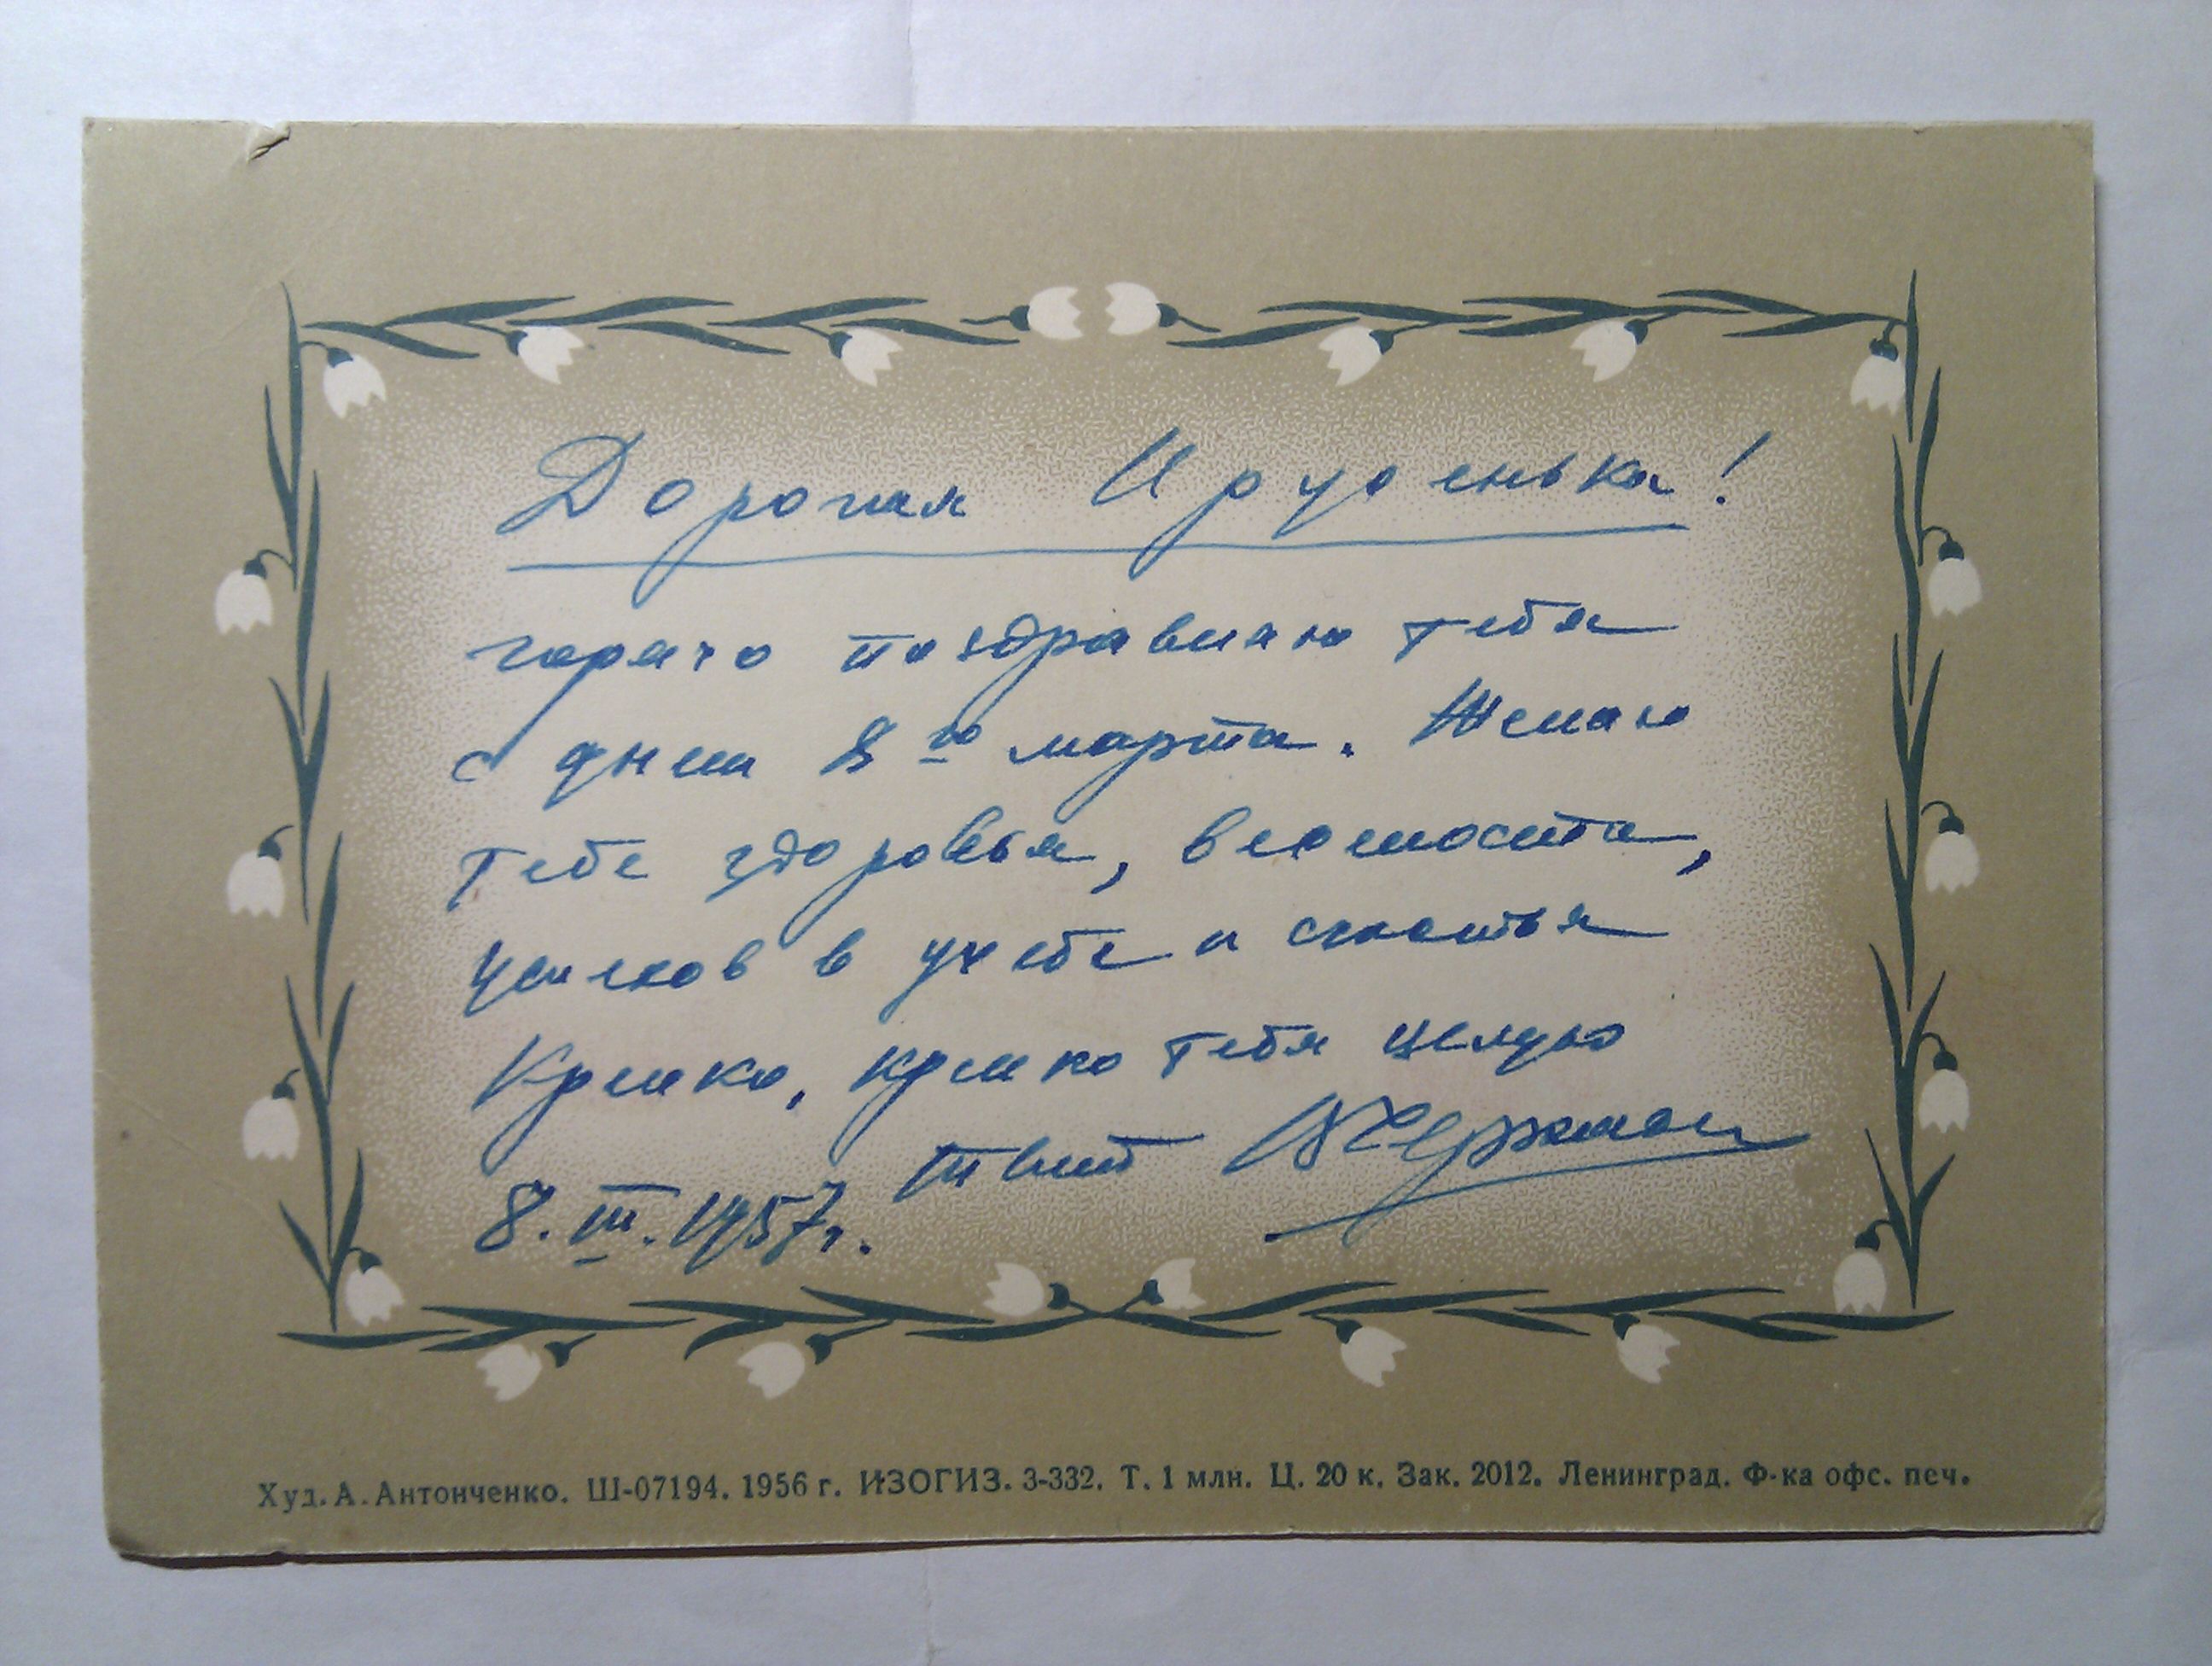 Дорогая Ирусенька!
горячо поздравляю тебя
с днем 8го марта. Желаю
тебе здоровья,
успехов в учебе и счастья
Крепко, крепко тебя целую
8.III.1957г. твой
Худ. А. Антонченко. Ш-07194. 1956 г. ИЗОГИЗ. 3-332. Т. 1 млн. Ц. 20 к. Зак. 2012. Ленинград. Ф-ка офс. печ.